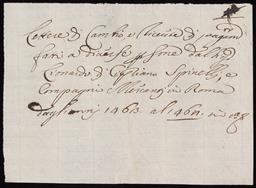 Lettere di Cambio e Ricevute di pagam.ti
fatti a diverse persone dal Sig.r
Lionardo di Cipriano Spinelli, e
Compagni Mercanti in Roma
dagl'anni 1463. al 1464.